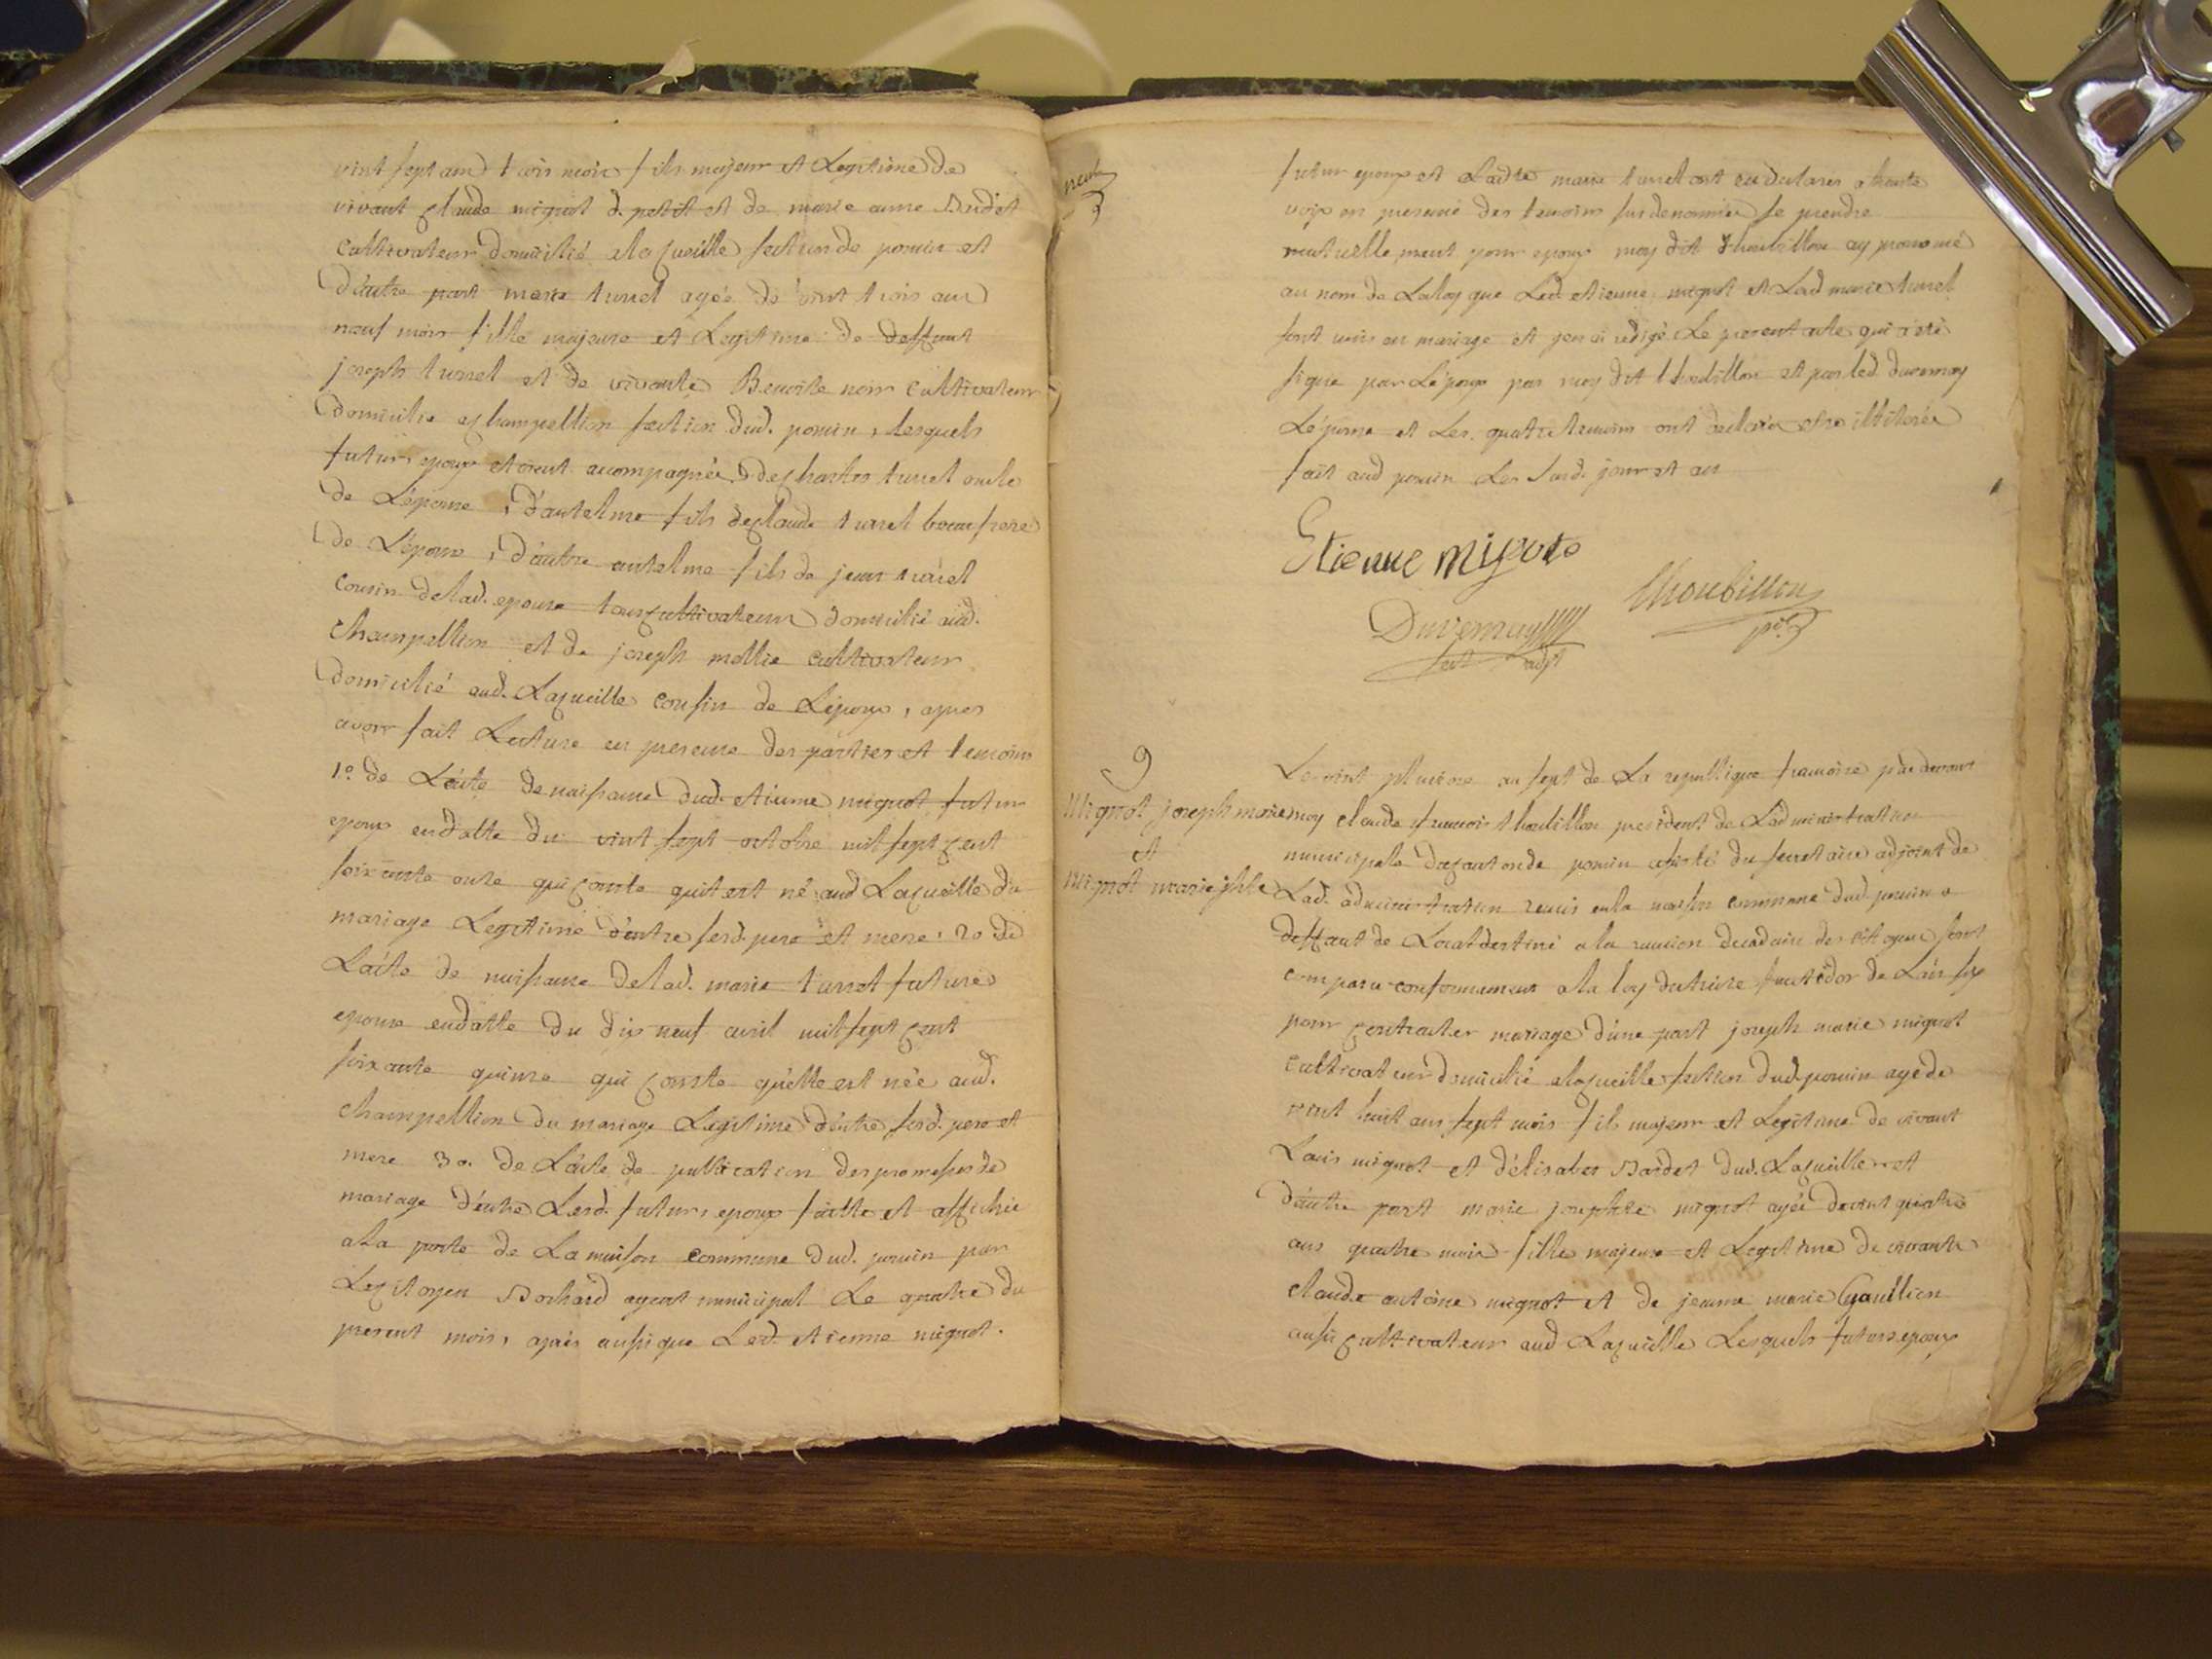 vint sept ans trois mois fils majeur et Legitime de
vivant Claude mignot d. petit et de marie anne Badet
cultivateur domicilié a la Cueille section de poncin et
d'autre part marie turrel agée de vint trois ans
neuf mois fille majeure et Legitime de deffunt
joseph turrel et de vivante Benoite noir cultivateur
domicilie a champellion section dud. poncin, lesquels
futurs epoux etoient acompagnés de charles turrel oncle
de L'epouse, d'antelme fils de Claude turrel beau frere
de L'epoux, d'autre antelme fils de jean turrel
cousin de lad. epouse tous cultivateurs domicilié aud.
champellion et de joseph mollie cultivateur
domicilié aud. Lacueille cousin de L'epoux, apres
avoir fait Lecture en presence des parties et temoins
1º. de L'acte de naissance dud. etienne mignot futur
epoux en datte du vint sept octobre mil sept cent
soixante onze qui conste qu'il est né aud Lacueille du
mariage Legitime d'entre sesd. pere et mere. 2o de
L'acte de naissance de lad. marie turrel future
epouse en datte du dix neuf avril mil sept cent
soixante quinze qui conste qu'elle est née aud.
champellion du mariage Legitime d'entre sesd. pere et
mere 3o. de L'acte de publication des promesses de
mariage d'entre Lesd. futurs epoux faitte et affichée
a La porte de La maison commune dud. poncin par
Le citoyen Bochard agent municipal Le quatre du
present mois, après aussi que Led. etienne mignot.
futur epoux et Ladte marie turrel ont eu declarés a haute
voix en presence des temoins sus denommés se prendre
mutuellement pour epoux moy dit thoubillon ay prononcé
au nom de La loy que Led. etienne mignot et Lad marie turrel
sont unis en mariage et j'en ai redigé Le present acte qui a été
signe par L'epoux par moy dit thoubillon et par led. duvernay
L'epouse et Les quatre temoins ont declaré etre illiterés
fait aud poncin Les susd. jour et an
Etienne Mignote
Thoubillon
pt
Duvernay
sect adjt
9
Mignot joseph marie
et
Mignot marie jphte
Le vint pluviose an sept de La republique francoise pardevant
moy claude francois thoubillon president de L'administration
municipale du canton de poncin assisté du secretaire adjoint de
Lad. administration reunis en la maison commune dud. poncin a
deffaut de Local destiné a la reunion decadaire des citoyens sont
comparu conformement a la loy du treize fructidor de L'an six
pour contracter mariage d'une part joseph marie mignot
cultivateur domicilié a lacueille section dud. poncin agé de
vint huit ans sept mois fils majeur et Legitime de vivant
Louis mignot et d'elisabet Badet dud. Lacueille et
d'autre part marie josephte mignot agée de vint quatre
ans quatre mois fille majeure et Legitime de vivante
claude antoine mignot et de jeanne marie Gaullien
aussi cultivateur aud Lacueille Lesquels futurs epoux